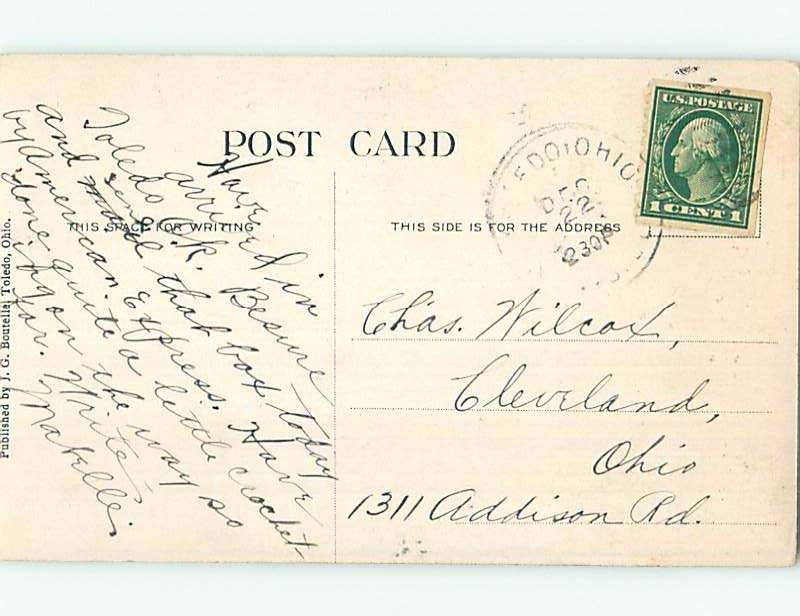 POST CARD
THIS SPACE FOR WRITING
THIS SIDE IS FOR THE ADDRESS
Published by J. G. Boutelle, Toledo, Ohio.
Have
arrived in
Toledo O.K. Besure
and send that box today
by American Express. Have
done quite a little crochet-
ing on the way so
far. Write
Mabelle.
U.S. POSTAGE
1 CENT 1
EDO, OHIO
DEC
22
230P
Chas. Wilcox,
Cleveland,
Ohio
1311 Addison Rd.